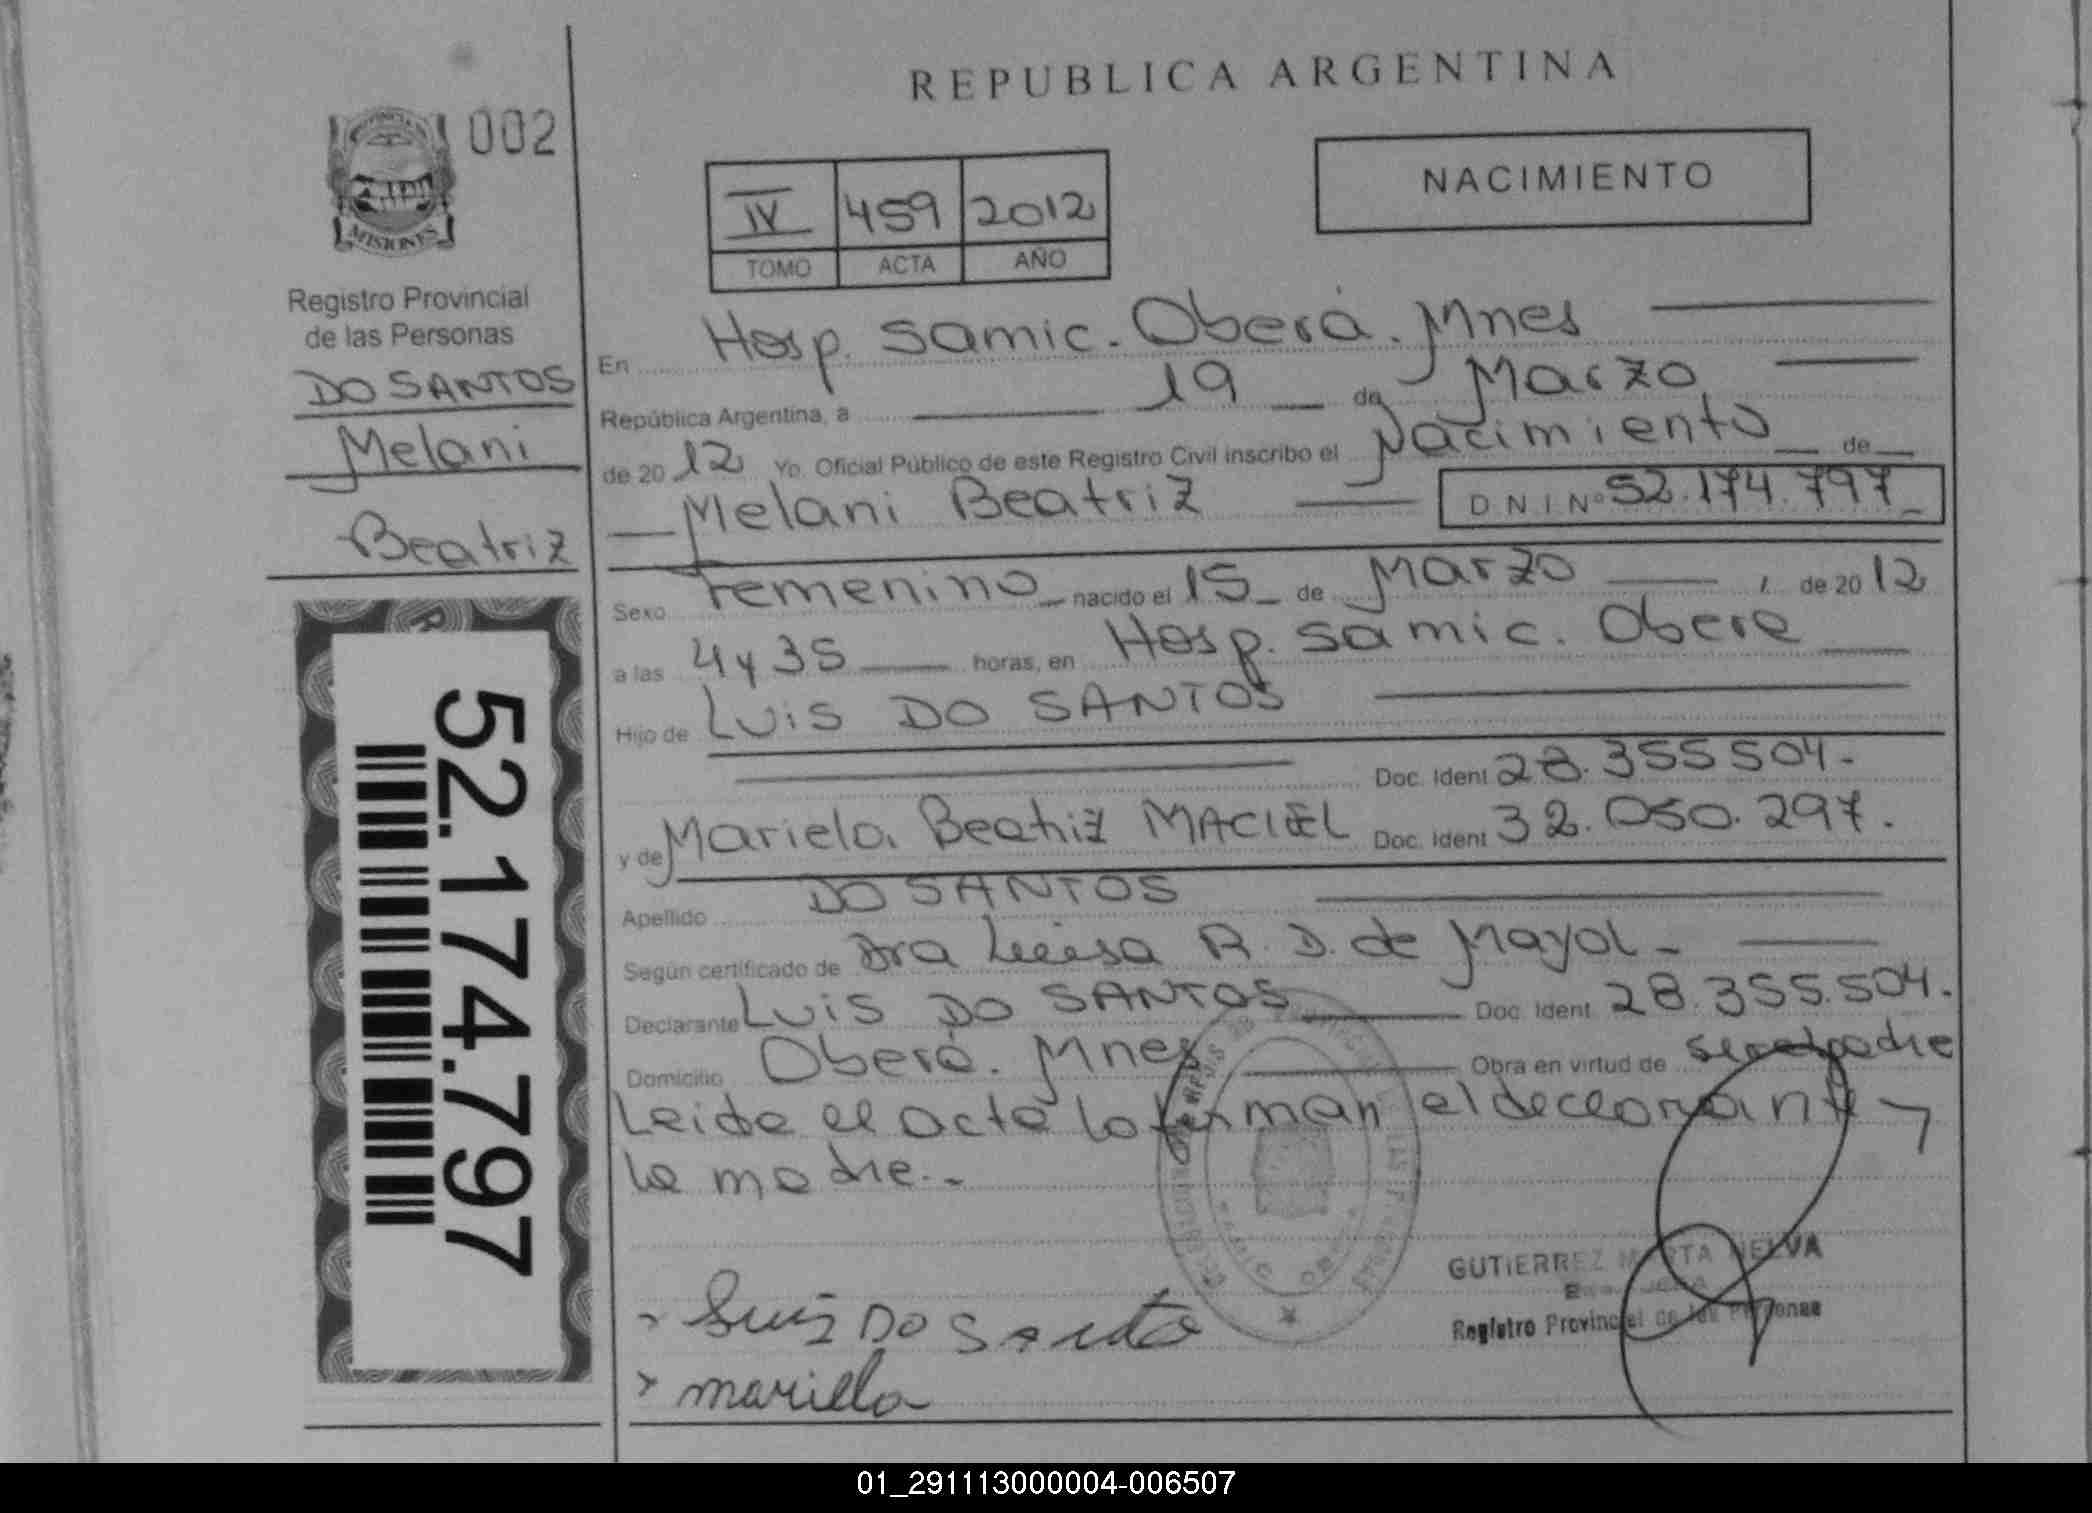 REPUBLICA ARGENTINA
002
MISIONES
Registro Provincial
de las Personas
DO SANTOS
Melani
Beatriz
52.174.797
IV 459 2012
TOMO ACTA AÑO
NACIMIENTO
En Hosp. Samic. Oberá. Mnes
República Argentina, a 19 de Marzo
de 2012 Yo. Oficial Público de este Registro Civil inscribo el Nacimiento de
Melani Beatriz D N I Nº 52.174.797
Sexo Femenino nacido el 15 de Marzo de 2012
a las 4 y 35 horas, en Hosp. Samic. Obera
Hijo de Luis DO SANTOS
Doc. Ident 28.355504.
y de Mariela Beatriz MACIEL Doc. Ident 32.050.297.
Apellido DO SANTOS
Según certificado de Dra Luisa R. D. de Mayol
Declarante Luis DO SANTOS Doc. Ident. 28.355.504.
Domicilio Oberá. Mnes Obra en virtud de ser el padre
Leida el acta la firman el declarante y
la madre.
GUTIERREZ MARTA NELVA
Registro Provincial de las Personas
Luis DO Santo
mariella
01_291113000004-006507